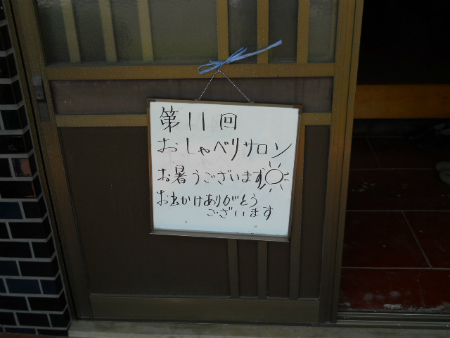 第11回
おしゃべりサロン
お暑うございます
お出かけありがとう
ございます